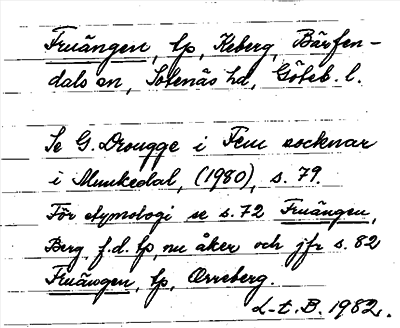 Fruängen, lp, Keberg, Bärfen-
dals sn, Sotenäs hd, Göteb. l.
Se G. Drougge i Fem socknar
i Munkedal, (1980), s. 79.
För etymologi se s. 72 Fruängen,
Berg f.d. lp, nu åker och jfr s. 82
Fruängen, lp, Orreberg.
L-t. B. 1982.